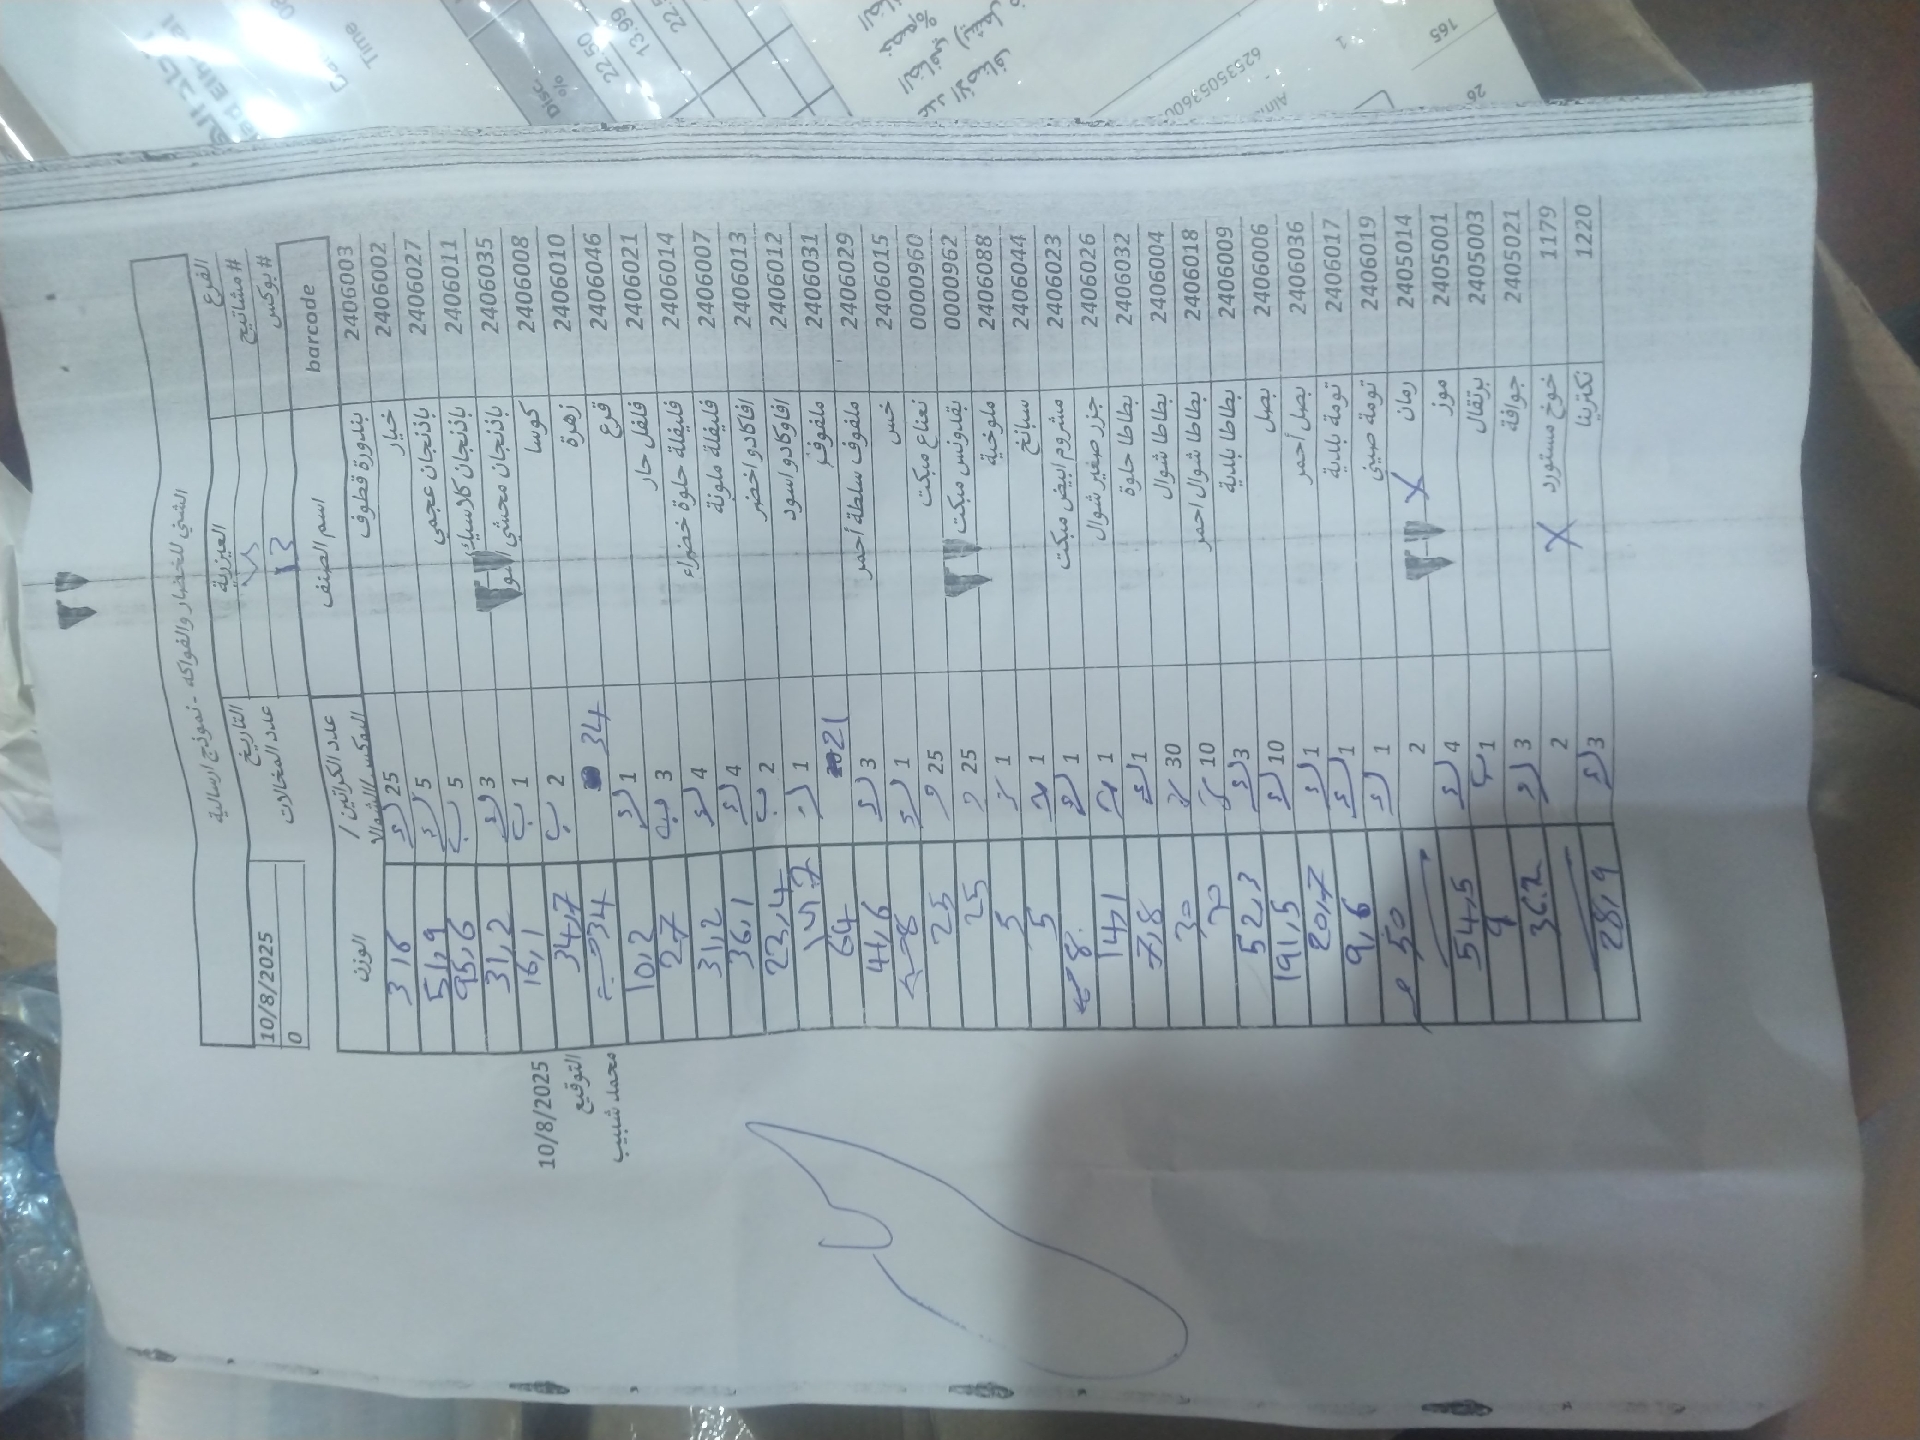 الشني للخضار والفواكه - نموذج ارسالية
الفرع العيزرية التاريخ 10/8/2025
# مشاتيح عدد المخالات 0
# بوكس 13
barcode اسم الصنف عدد الكراتين / البوكس/الشوال الوزن
2406003 بندورة قطوف 25 316
2406002 خيار 5 51,9
2406027 باذنجان عجمي 5 95,6
2406011 باذنجان كلاسيك 3 31,2
2406035 باذنجان محشي 1 16,1
2406008 كوسا 2 34,7
2406010 زهرة 34 34
2406046 قرع 1 10,2
2406021 فلفل حار 3 27
2406014 فليفلة حلوة خضراء 4 31,2
2406007 فليفلة ملونة 4 36,1
2406013 افاكادو اخضر 2 23,4
2406012 افوكادو اسود 1
2406031 ملفوف 21 64
2406029 ملفوف سلطة أحمر 3 41,6
2406015 خس 1 8
0000960 نعناع مبكت 25 25
0000962 بقدونس مبكت 25 25
2406088 ملوخية 1 5
2406044 سبانخ 1 5
2406023 مشروم ابيض مبكت 1 8
2406026 جزر صغير شوال 1 14,1
2406032 بطاطا حلوة 1 7,8
2406004 بطاطا شوال 30 30
2406018 بطاطا شوال احمر 10
2406009 بطاطا بلدية 3 52,3
2406006 بصل 10 191,5
2406036 بصل أحمر 1 20,7
2406017 تومة بلدية 1 9,6
2406019 تومة صيني 1 50
2405014 رمان X 2
2405001 موز 4 54,5
2405003 برتقال 1 9
2405021 جوافة 3 36.2
1179 خوخ مستورد X 2
1220 نكترينا 3 28,9
10/8/2025
التوقيع
محمد شبيب
Time
Disc %
22.50
13.99
عدد الأصناف
165
1
26